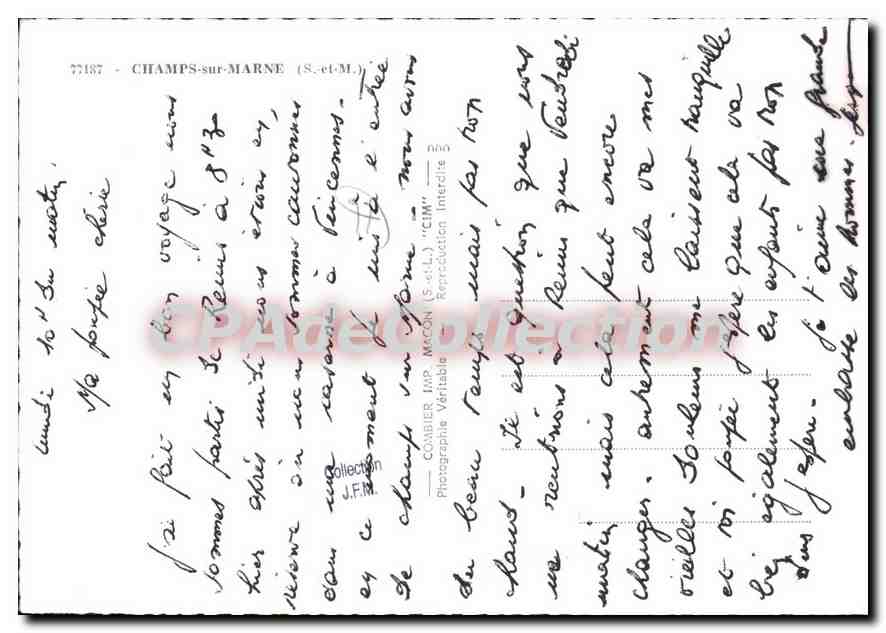 77187 - CHAMPS-sur-MARNE (S.-et-M.)
lundi 10H30 matin.
Ma poupée chérie
j'ai fait un bon voyage nous
sommes partis de Reims à 8H30
hier après midi nous étions en
réserve où nous sommes
dans une caserne à Vincennes.
en ce moment je suis à l'entrée
de champs sur Marne - nous avons
du beau temps mais pas trop
chaud. Il est question que nous
ne rentrions à Reims que Vendredi
matin mais cela peut encore
changer. autrement cela va mes
vieilles douleurs me laissent tranquille
et toi poupée j'espère que cela va
bien également les enfants pas trop
durs j'espère. je t'aime une grande
embrasse les hommes.
COMBIER IMP. MACON (S.-et-L.) "CIM"
Photographie Véritable - Reproduction Interdite
Collection
J.F.M.
CPAdeCollection